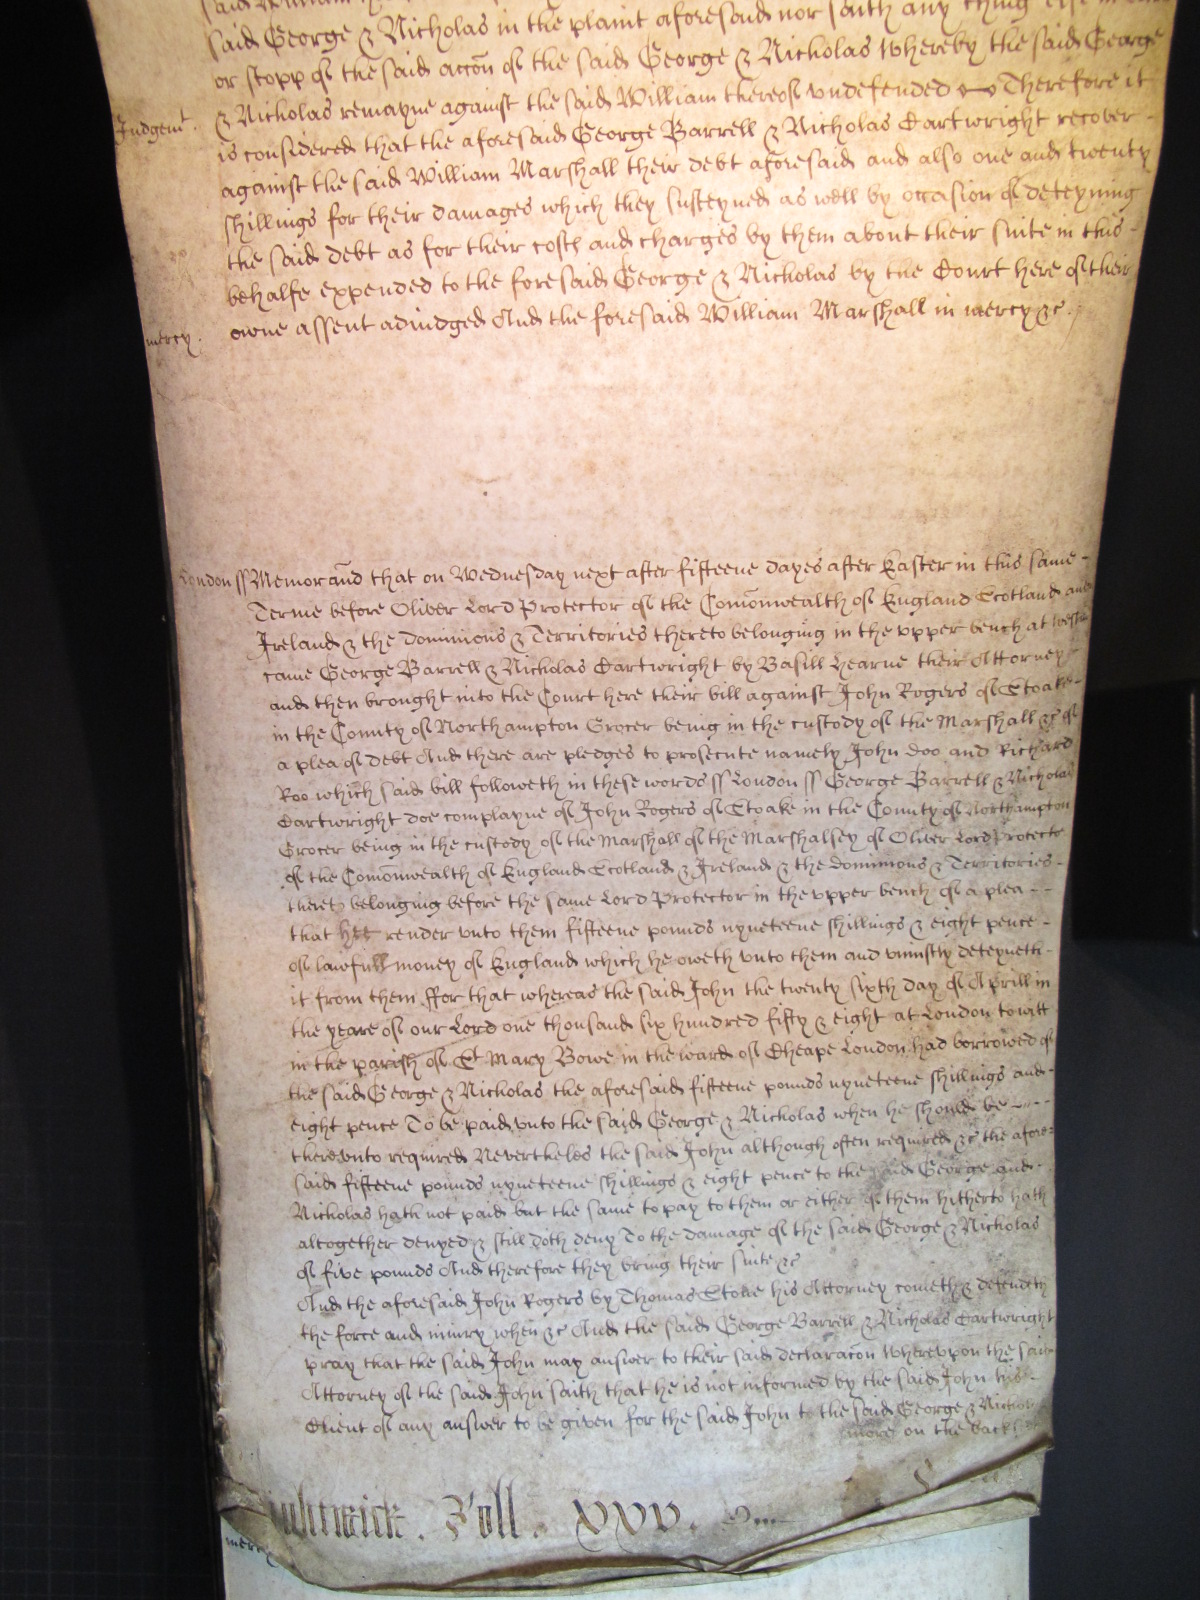 said George & Nicholas in the plaint aforesaid nor saith any thing else in
or stopp of the said accōn of the said George & Nicholas Whereby the said George
& Nicholas remayne against the said William thereof undefended Therefore it
Judgemt.
is considered that the aforesaid George Barrell & Nicholas Cartwright recover
against the said William Marshall their debt aforesaid and also one and twenty
shillings for their damages which they susteyned as well by occasion of deteyning
the said debt as for their costs and charges by them about their suite in this
behalfe expended to the foresaid George & Nicholas by the Court here of their
owne assent adiudged And the foresaid William Marshall in mercy &c.
mercy.
London ss Memorand that on Wednesday next after fifteene dayes after Easter in this same
Terme before Oliver Lord Protector of the Comōnwealth of England Scotland and
Ireland & the Dominions & Territories thereto belonging in the upper bench at Westm
came George Barrell & Nicholas Cartwright by Basill Hearne their Attorney
and then brought into the Court here their bill against John Rogers of Stoake
in the County of Northampton Grocer being in the custody of the Marshall &c of
a plea of debt And there are pledges to prosecute namely John Doo and Richard
Roo which said bill followeth in these words ss London ss George Barrell & Nicholas
Cartwright doe complayne of John Rogers of Stoake in the County of Northampton
Grocer being in the custody of the Marshall of the Marshalsey of Oliver Lord Protector
of the Comōnwealth of England Scotland & Ireland & the Dominions & Territories
thereto belonging before the same Lord Protector in the upper bench of a plea
that hee render unto them fifteene pounds nyneteene shillings & eight pence
of lawfull money of England which he oweth unto them and uniustly deteyneth
it from them ffor that whereas the said John the twenty sixth day of Aprill in
the yeare of our Lord one thousand six hundred fifty & eight at London to witt
in the parish of St Mary Bowe in the ward of Cheape London had borrowed of
the said George & Nicholas the aforesaid fifteene pounds nyneteene shillings and
eight pence To be paid unto the said George & Nicholas when he should be
thereunto required Neverthelesse the said John although often required &c the afore
said fifteene pounds nyneteene shillings & eight pence to the said George and
Nicholas hath not paid but the same to pay to them or either of them hitherto hath
altogether denyed & still doth deny To the damage of the said George & Nicholas
of five pounds And therefore they bring their suite &c
And the aforesaid John Rogers by Thomas Stone his Attorney cometh & defendeth
the force and iniury when &c And the said George Barrell & Nicholas Cartwright
pray that the said John may answer to their said declaracōn Whereupon the said
Attorney of the said John saith that he is not informed by the said John his
Client of any answer to be given for the said John to the said George & Nichol
more on the back
Roll. XXV.
mercy